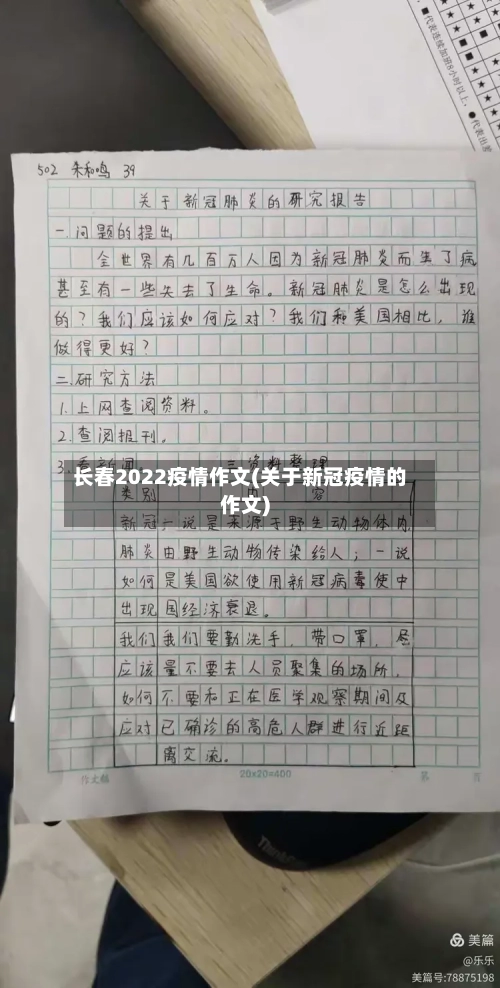 代表连续加班8小时以上,
502 朱和鸣 39
关于新冠肺炎的研究报告
一.问题的提出
全世界有几百万人因为新冠肺炎而生了病
甚至有一些失去了生命。新冠肺炎是怎么出现
的?我们应该如何应对?我们和美国相比,谁
做得更好?
二.研究方法
1.上网查阅资料。
2.查阅报刊。
3.看新闻 三.资料整理
长春2022疫情作文(关于新冠疫情的
作文)
类别 内容
新冠 一说是来源于野生动物体内
肺炎 由野生动物传染给人;一说
如何 是美国欲使用新冠病毒使中
出现 国经济衰退。
我们 我们要勤洗手,带口罩,尽
应该 量不要去人员聚集的场所,
如何 不要和正在医学观察期间及
应对 已确诊的高危人群进行近距
离交流。
作文稿 20×20=400 第 页
ThinkPad
美篇
@乐乐
美篇号:78875198